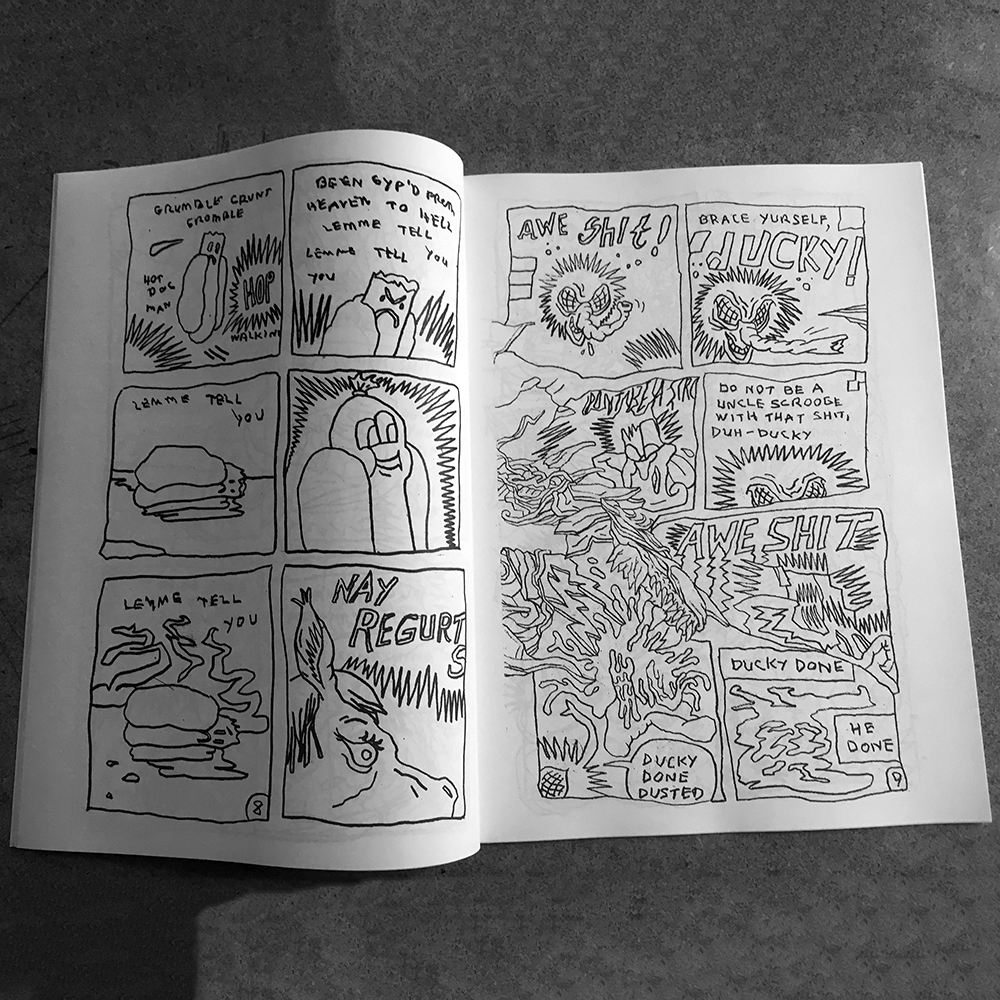 GRUMBLE CRUNT
GROMBLE
HOT
DOG
MAN
HOP
WALKIN
BEEN GYP'D FROM
HEAVEN TO HELL
LEMME TELL
LEMME TELL YOU
YOU
LEMME TELL
YOU
LEMME TELL
YOU
NAY
REGURT
S
8
AWE Shit!
BRACE YURSELF,
'DUCKY!
DO NOT BE A
UNCLE SCROOGE
WITH THAT SHIT,
DUH-DUCKY
AWE SHIT
DUCKY
DONE
DUSTED
DUCKY DONE
HE
DONE
9